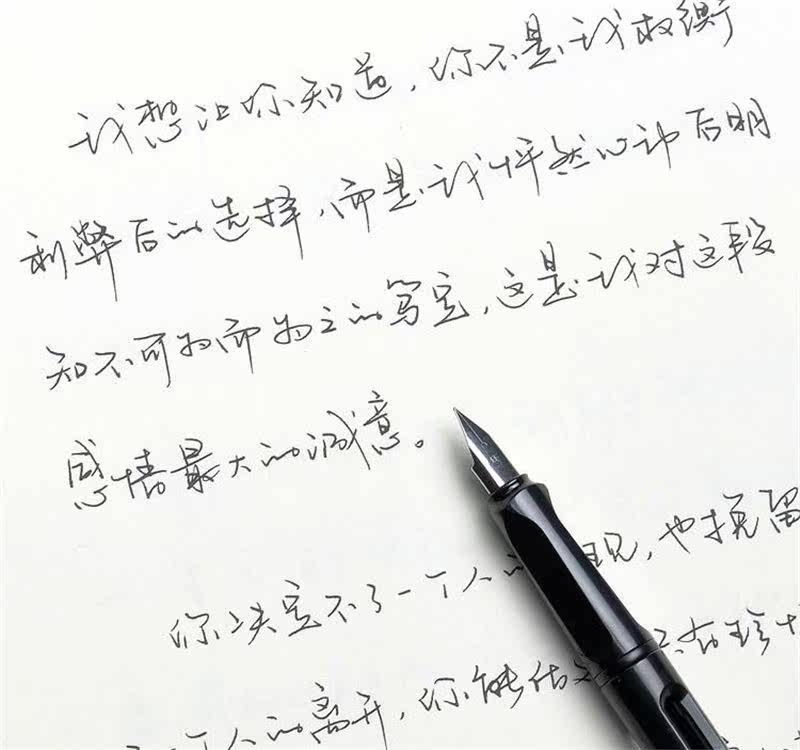 我想让你知道，你不是我权衡
利弊后的选择，而是我怦然心动后明
知不可为而为之的笃定，这是我对这段
感情最大的诚意。
你决定不了一个人的出现，也挽留
个人的离开，你能做 只有珍惜